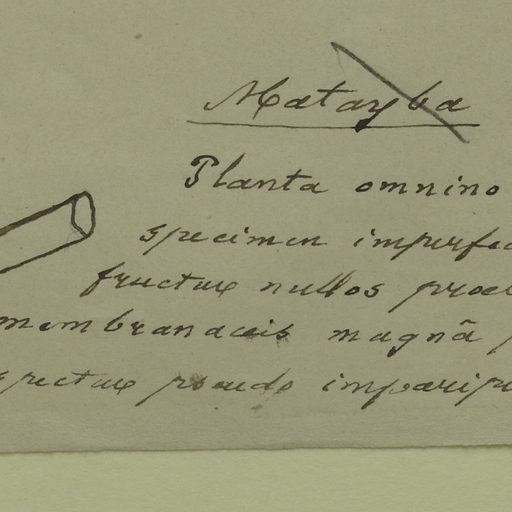 Matayba
Planta omnino
specimen imperfec
fructus nullos prae
membranaceis magnâ p
spectus pseudo imparipi